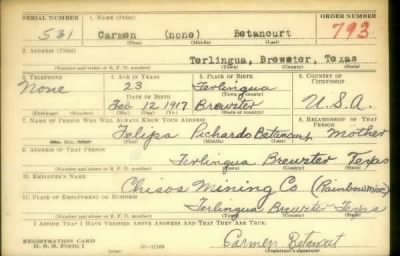 SERIAL NUMBER 1. NAME (Print) ORDER NUMBER
531 Carmen (none) Betancourt 793
(First) (Middle) (Last)
2. ADDRESS (Print)
Terlingua, Brewster, Texas
(Number and street or R. F. D. number) (Town) (County) (State)
3. TELEPHONE 4. AGE IN YEARS 5. PLACE OF BIRTH 6. COUNTRY OF CITIZENSHIP
None 23 Terlingua
DATE OF BIRTH (Town or county)
Feb 12 1917 Brewster U.S.A.
7. NAME OF PERSON WHO WILL ALWAYS KNOW YOUR ADDRESS 8. RELATIONSHIP OF THAT PERSON
Felipa Richardo Betancourt Mother
(Mr., Mrs., Miss) (First) (Middle) (Last)
9. ADDRESS OF THAT PERSON
Terlingua Brewster Texas
(Number and street or R. F. D. number) (Town) (County) (State)
10. EMPLOYER'S NAME
Chisos Mining Co (Rainbow mine)
11. PLACE OF EMPLOYMENT OR BUSINESS
Terlingua Brewster Texas
(Number and street or R. F. D. number) (Town) (County) (State)
I AFFIRM THAT I HAVE VERIFIED ABOVE ANSWERS AND THAT THEY ARE TRUE.
REGISTRATION CARD
D. S. S. FORM 1 16—17105 Carmen Betancourt
(Registrant's signature)